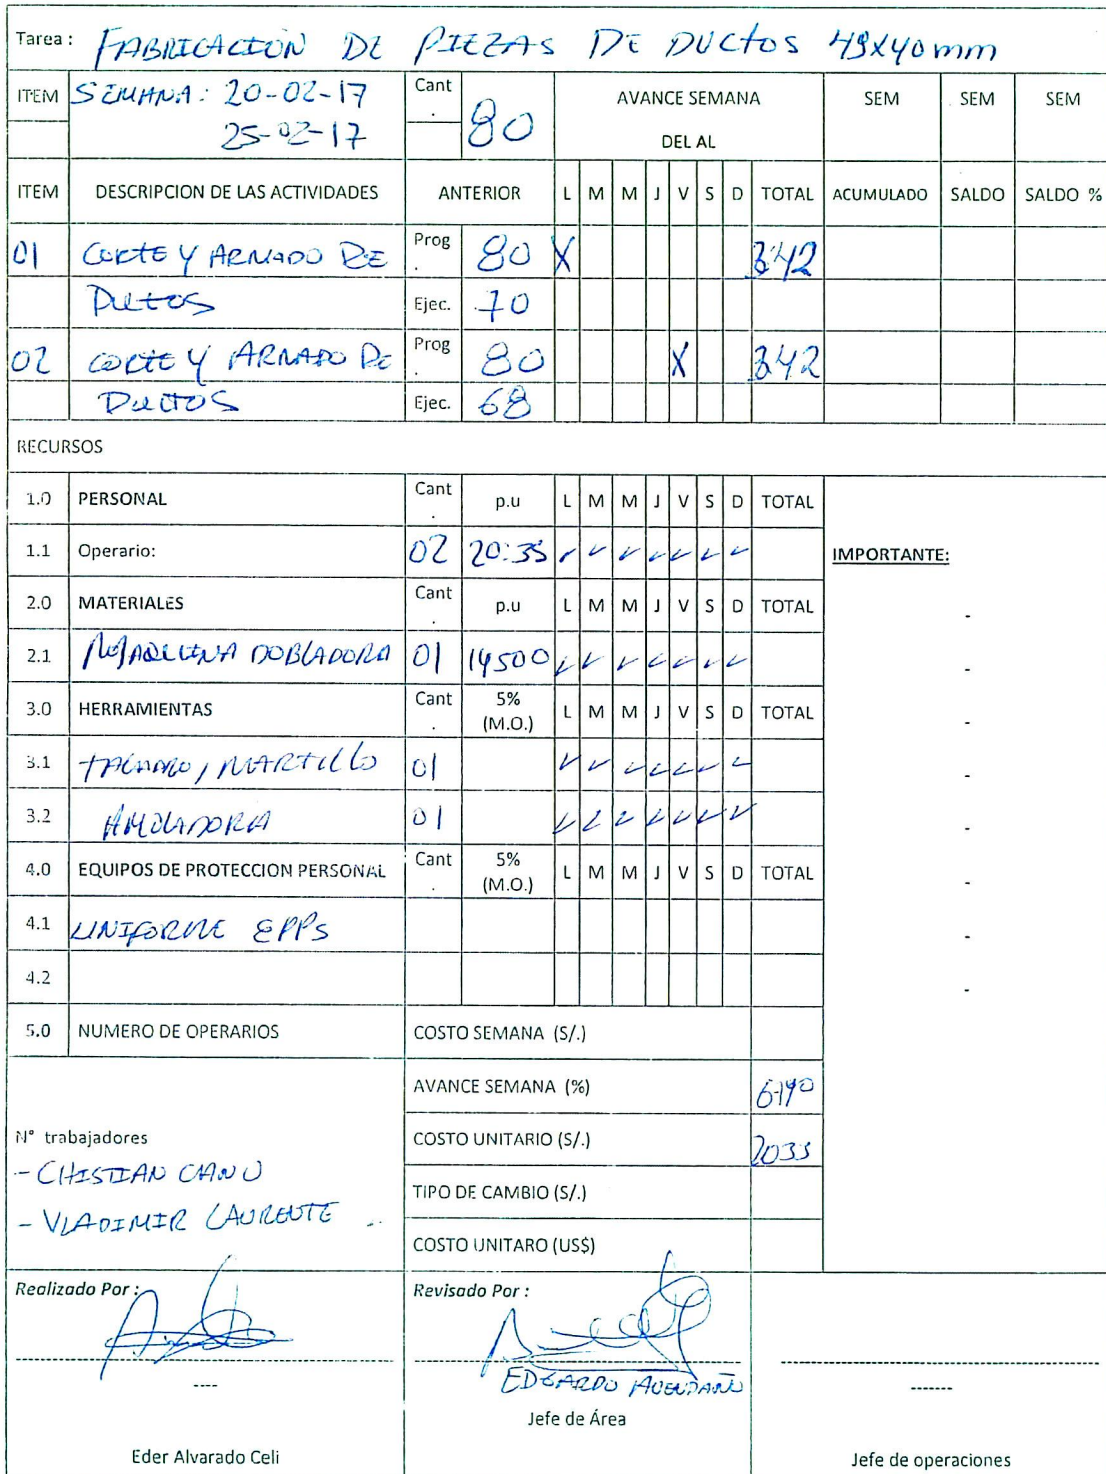 Tarea : FABRICACION DE PIEZAS DE DUCTOS 49X40mm
ITEM SEMANA: 20-02-17 Cant. 80 AVANCE SEMANA SEM SEM SEM
25-02-17 DEL AL
ITEM DESCRIPCION DE LAS ACTIVIDADES ANTERIOR L M M J V S D TOTAL ACUMULADO SALDO SALDO %
01 CORTE Y ARMADO DE Prog. 80 X 342
DUCTOS Ejec. 70
02 CORTE Y ARMADO DE Prog. 80 X 342
DUCTOS Ejec. 68
RECURSOS
1.0 PERSONAL Cant. p.u L M M J V S D TOTAL
1.1 Operario: 02 20:35 ✓ ✓ ✓ ✓ ✓ ✓ ✓ IMPORTANTE:
2.0 MATERIALES Cant. p.u L M M J V S D TOTAL -
2.1 MAQUINA DOBLADORA 01 14500 ✓ ✓ ✓ ✓ ✓ ✓ ✓ -
3.0 HERRAMIENTAS Cant. 5% (M.O.) L M M J V S D TOTAL -
3.1 TALADRO, MARTILLO 01 ✓ ✓ ✓ ✓ ✓ ✓ ✓ -
3.2 AMOLADORA 01 ✓ ✓ ✓ ✓ ✓ ✓ ✓ -
4.0 EQUIPOS DE PROTECCION PERSONAL Cant. 5% (M.O.) L M M J V S D TOTAL -
4.1 UNIFORME EPPs -
4.2 -
5.0 NUMERO DE OPERARIOS COSTO SEMANA (S/.)
AVANCE SEMANA (%)
N° trabajadores COSTO UNITARIO (S/.) 2035
- CHISTIAN CANO
TIPO DE CAMBIO (S/.)
- VLADIMIR LAURENTE
COSTO UNITARO (US$)
Realizado Por : Revisado Por :
EDGARDO AVENDAÑO
Jefe de Área
Eder Alvarado Celi Jefe de operaciones